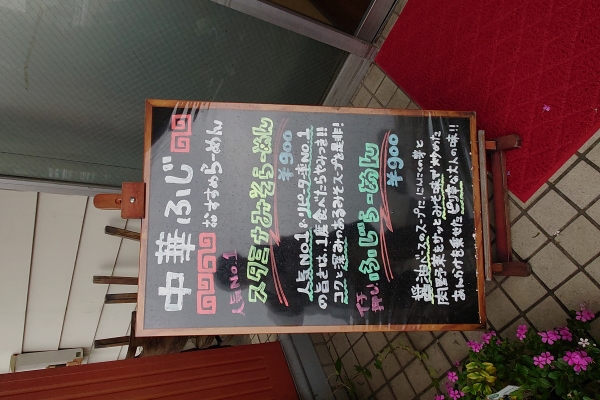 中華ふじ
おすすめらーめん
人気No.1
スタミナみそらーめん
¥900
人気NO.1 &リピーター率NO.1
の旨とは、1度食べたらやみつき!!
コクと深みのあるみそスープを是非!
ふじらーめん
¥900
醤油ベースのスープに、にんにくの芽と
肉野子菜をサッとみそ味で炒めた
あんかけを乗せたピリ辛な大人の味!!